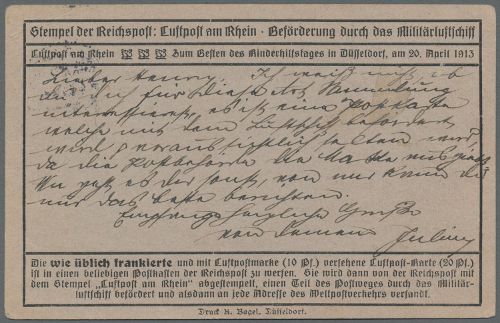 Stempel der Reichspost: Luftpost am Rhein · Beförderung durch das Militärluftschiff
Luftpost am Rhein Zum Besten des Kinderhilfstages in Düsseldorf, am 20. April 1913
Lieber Henry. Ich weiß nicht ob
du Dich für diese Art Sammlung
interessierst, es ist eine Postkarte
welche mit dem Luftschiff befördert
wird
da die Postbehörde die Marke ausgiebt
Wie geht es Dir sonst, von mir kann ich
nur das beste berichten.
herzliche Grüße
von Deinem Julius
Die wie üblich frankierte und mit Luftpostmarke (10 Pf.) versehene Luftpost-Karte (20 Pf.)
ist in einen beliebigen Postkasten der Reichspost zu werfen. Sie wird dann von der Reichspost mit
dem Stempel „Luftpost am Rhein" abgestempelt, einen Teil des Postweges durch das Militär-
luftschiff befördert und alsdann an jede Adresse des Weltpostverkehrs versandt.
Druck A. Bagel, Düsseldorf.